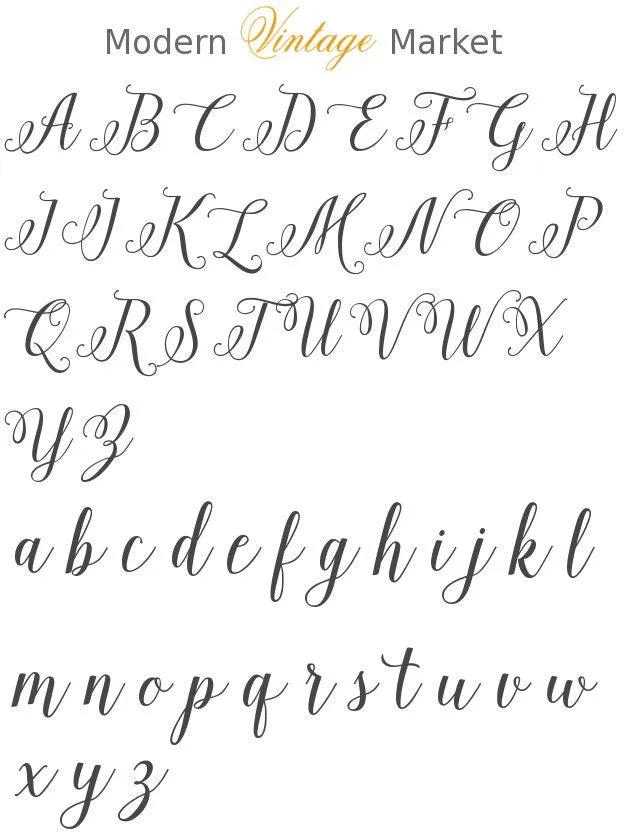 Modern Vintage Market
A B C D E F G H
I J K L M N O P
Q R S T U V W X
Y Z
a b c d e f g h i j k l
m n o p q r s t u v w
x y z